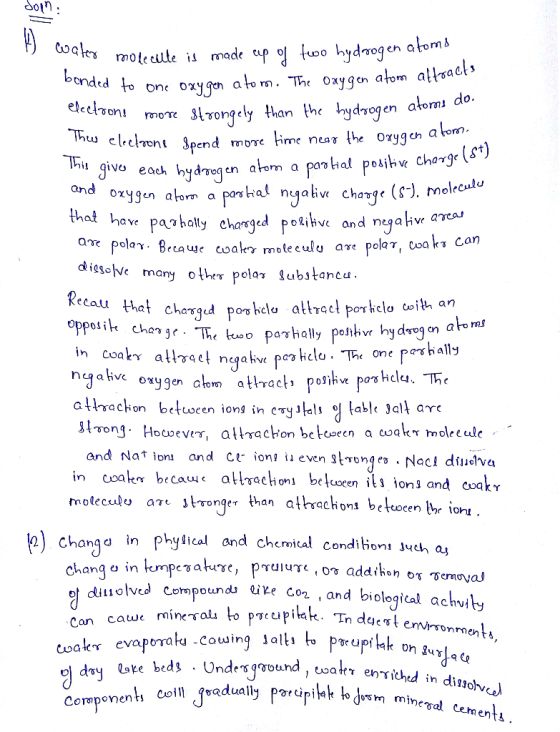 Soln:
1) water molecule is made up of two hydrogen atoms
bonded to one oxygen atom. The oxygen atom attracts
electrons more strongely than the hydrogen atoms do.
Thus electrons spend more time near the oxygen atom.
This gives each hydrogen atom a partial positive charge (δ+)
and oxygen atom a partial negative charge (δ-). molecules
that have partially charged positive and negative areas
are polar. Because water molecules are polar, water can
dissolve many other polar substances.
Recall that charged particles attract particles with an
opposite charge. The two partially positive hydrogen atoms
in water attract negative particles. The one partially
negative oxygen atom attracts positive particles. The
attraction between ions in crystals of table salt are
strong. However, attraction between a water molecule
and Na+ ions and Cl- ions is even stronger. NaCl dissolves
in water because attractions between its ions and water
molecules are stronger than attractions between the ions.
2) Changes in physical and chemical conditions such as
changes in temperature, pressure, or addition or removal
of dissolved compounds like CO2, and biological activity
can cause minerals to precipitate. In desert environments,
water evaporates causing salts to precipitate on surface
of dry lake beds. Underground, water enriched in dissolved
components will gradually precipitate to form mineral cements.